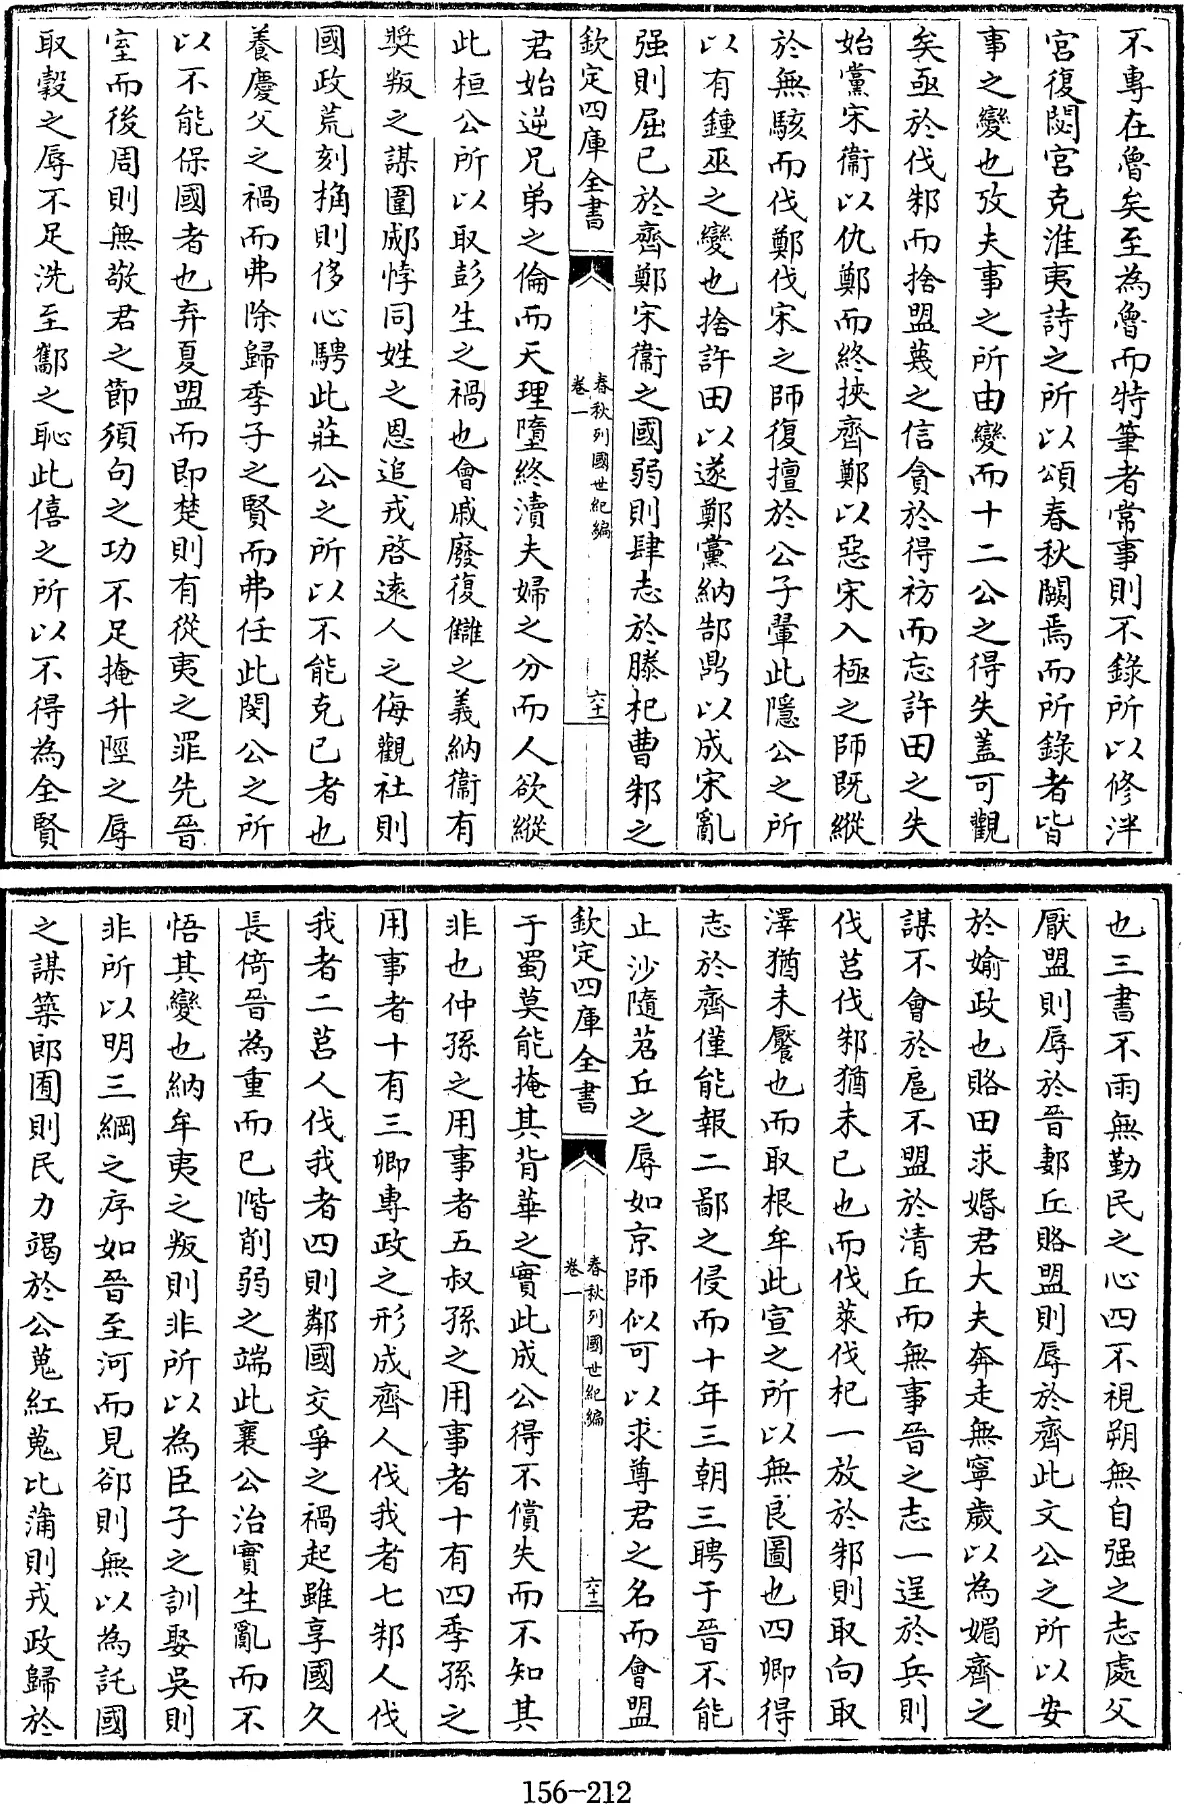 不專在魯矣至為魯而特筆者常事則不錄所以修泮
宮復閟宮克淮夷詩之所以頌春秋闕焉而所錄者皆
事之變也攷夫事之所由變而十二公之得失蓋可觀
矣亟於伐邾而捨盟蔑之信貪於得祊而忘許田之失
始黨宋衞以仇鄭而終挾齊鄭以惡宋入極之師既縱
於無駭而伐鄭伐宋之師復擅於公子翬此隱公之所
以有鍾巫之變也捨許田以遂鄭黨納郜鼎以成宋亂
强則屈已於齊鄭宋衞之國弱則肆志於滕杞曹邾之
欽定四庫全書
春秋列國世紀編
卷一
六十一
君始逆兄弟之倫而天理墮終瀆夫婦之分而人欲縱
此桓公所以取彭生之禍也會戚廢復讎之義納衞有
奬叛之謀圍郕悖同姓之恩追戎啓逺人之侮觀社則
國政荒刻桷則侈心騁此莊公之所以不能克已者也
養慶父之禍而弗除歸季子之賢而弗任此閔公之所
以不能保國者也弃夏盟而即楚則有從夷之罪先晉
室而後周則無敬君之節須句之功不足掩升陘之辱
取穀之辱不足洗至酅之恥此僖之所以不得為全賢
也三書不雨無勤民之心四不視朔無自强之志處父
厭盟則辱於晉郪丘賂盟則辱於齊此文公之所以安
於媮政也賂田求婚君大夫奔走無寧歲以為媚齊之
謀不會於扈不盟於清丘而無事晉之志一逞於兵則
伐莒伐邾猶未已也而伐萊伐杞一放於邾則取向取
澤猶未饜也而取根牟此宣之所以無良圖也四卿得
志於齊僅能報二鄙之侵而十年三朝三聘于晉不能
止沙隨苕丘之辱如京師似可以求尊君之名而會盟
欽定四庫全書
春秋列國世紀編
卷一
六十二
于蜀莫能掩其背華之實此成公得不償失而不知其
非也仲孫之用事者五叔孫之用事者十有四季孫之
用事者十有三卿專政之形成齊人伐我者七邾人伐
我者二莒人伐我者四則鄰國交爭之禍起雖享國久
長倚晉為重而已階削弱之端此襄公治實生亂而不
悟其變也納牟夷之叛則非所以為臣子之訓娶吳則
非所以明三綱之存如晉至河而見卻則無以為託國
之謀築郎囿則民力竭於公蒐紅蒐比蒲則戎政歸於
156-212